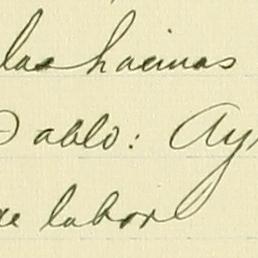 las hacinas
Pablo: Ay
de labor